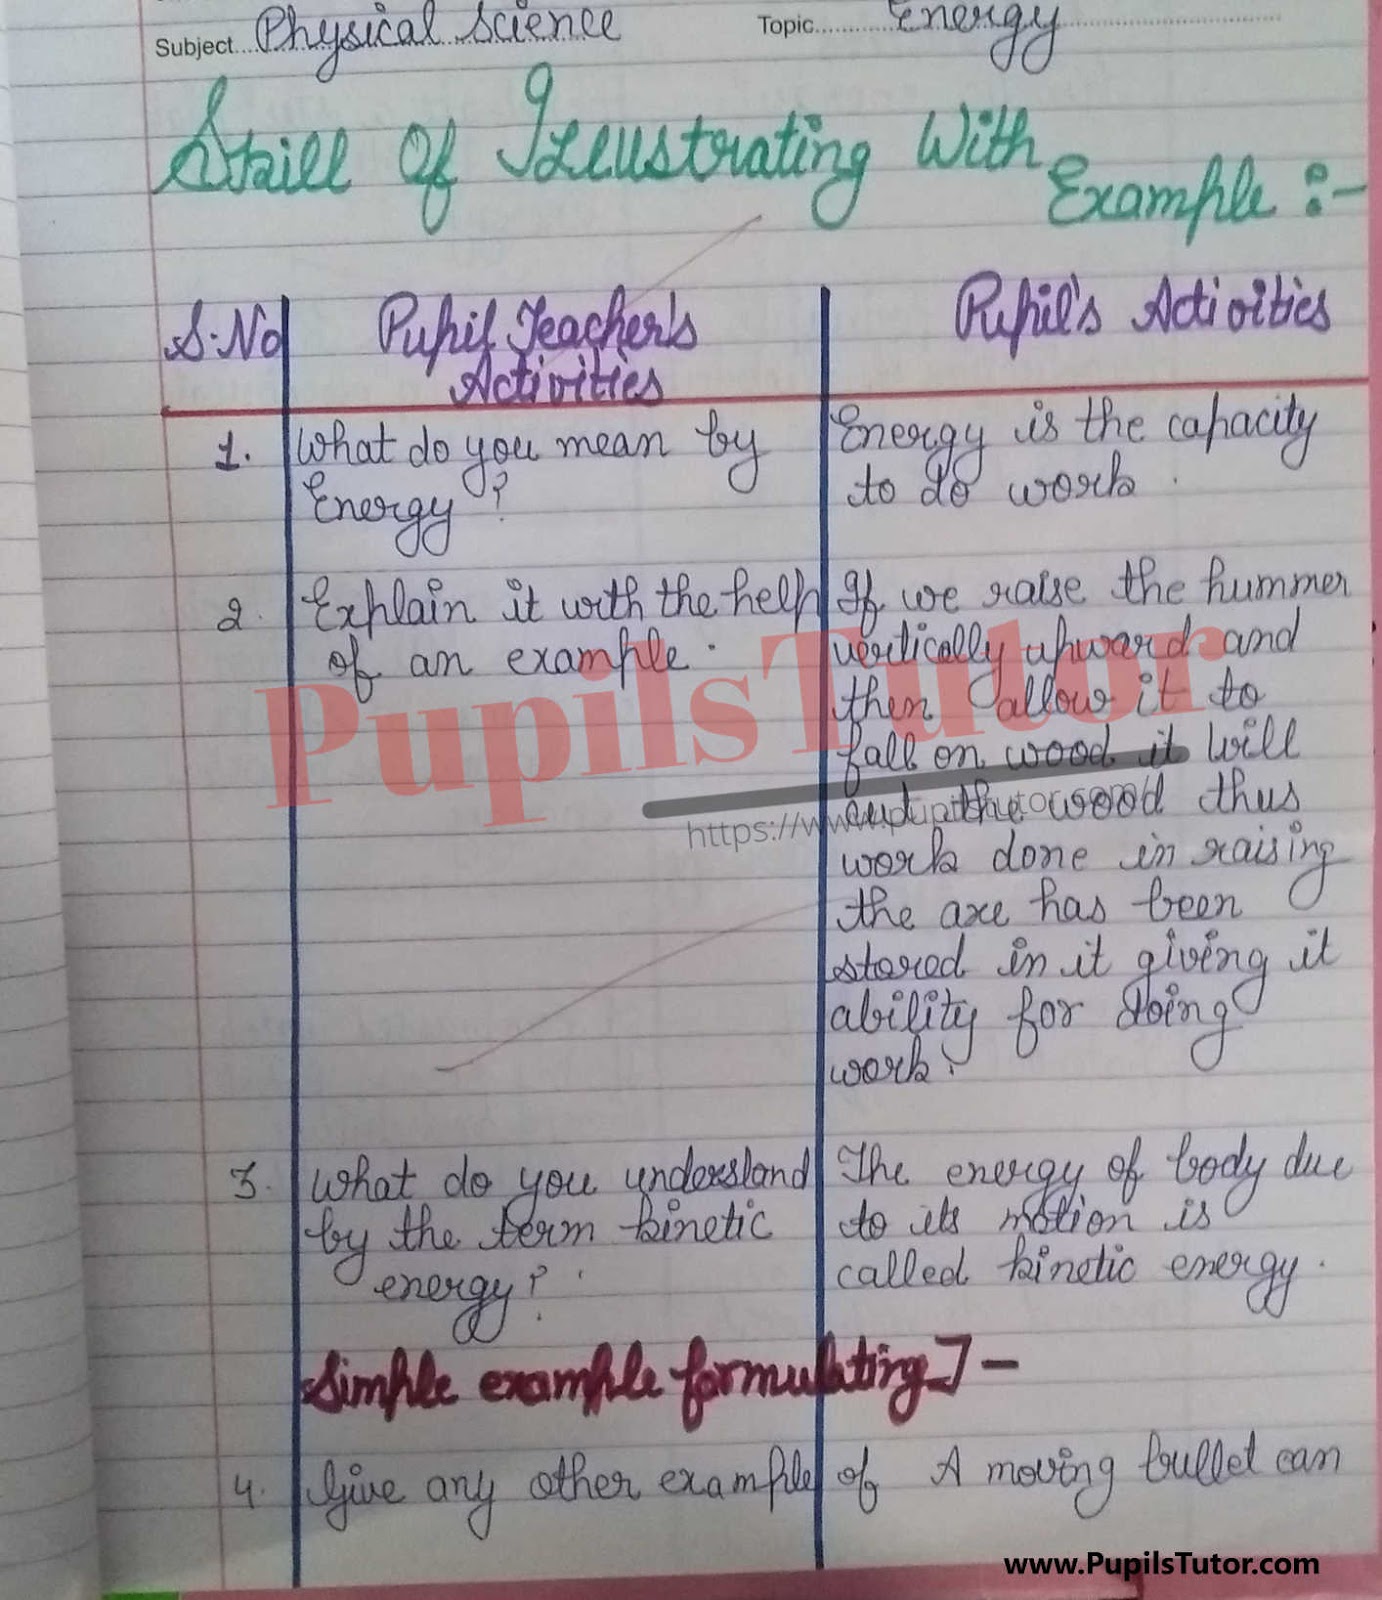 Subject....Physical Science Topic............Energy
Skill Of Illustrating With
Example :-
S.No Pupil Teacher's Activities Pupil's Activities
1. What do you mean by Energy?
Energy is the capacity
to do work.
2. Explain it with the help
of an example.
If we raise the hummer
vertically upward and
then allow it to
fall on wood it will
cut the wood thus
work done in raising
the axe has been
stored in it giving it
ability for doing
work.
3. What do you understand
by the term kinetic
energy?
The energy of body due
to its motion is
called kinetic energy.
Simple example formulating :-
4. Give any other example of A moving bullet can
PupilsTutor
https://www.pupilstutor.com/
www.PupilsTutor.com